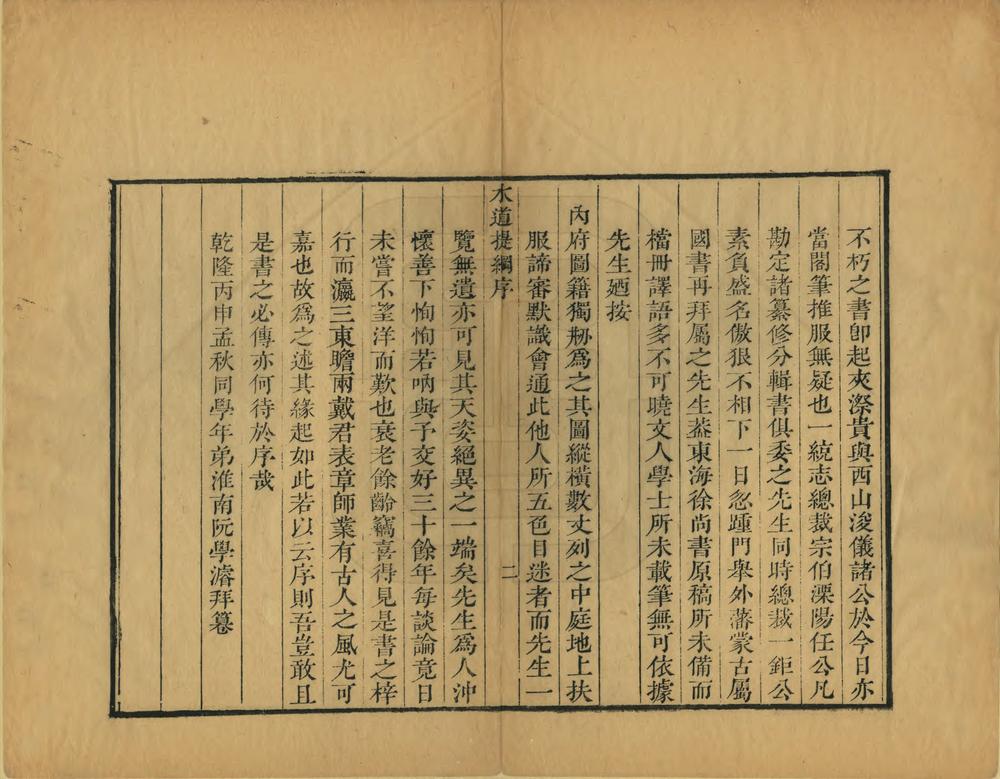 不朽之書卽起夾漈貴與西山浚儀諸公於今日亦
當閣筆推服無疑也一統志總裁宗伯溧陽任公凡
勘定諸纂修分輯書俱委之先生同時總裁一鉅公
素負盛名傲狠不相下一日忽踵門舉外藩蒙古屬
國書再拜屬之先生葢東海徐尚書原稿所未備而
檔冊譯語多不可曉文人學士所未載筆無可依據
先生廼按
內府圖籍獨剙爲之其圖縱橫數丈列之中庭地上扶
服諦審默識會通此他人所五色目迷者而先生一
水道提綱序
二
覽無遺亦可見其天姿絕異之一端矣先生爲人沖
懷善下恂恂若吶與予交好三十餘年每談論竟日
未嘗不望洋而歎也衰老餘齡竊喜得見是書之梓
行而瀛三東瞻兩戴君表章師業有古人之風尤可
嘉也故爲之述其緣起如此若以云序則吾豈敢且
是書之必傳亦何待於序哉
乾隆丙申孟秋同學年弟淮南阮學濬拜篹